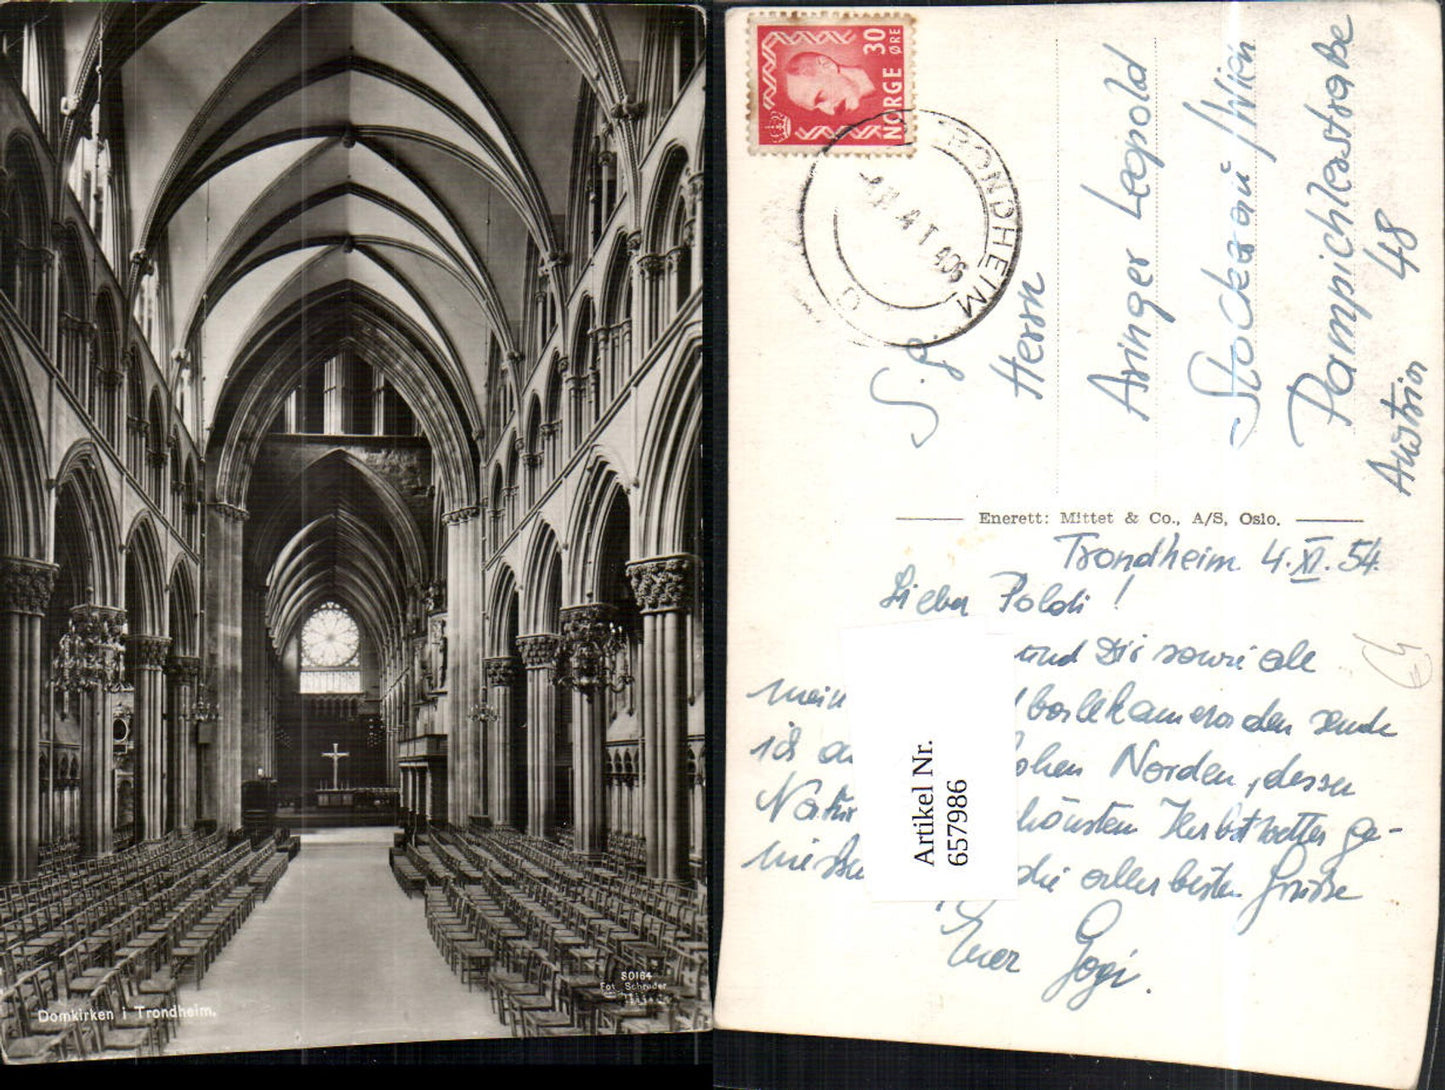 Domkirken i Trondheim.
S0164
Fot. Schrøder
NORGE 30
ØRE
TRONDHEIM
S. g.
Herrn
Aringer Leopold
Stockerau / Wien
Pampichlerstraße
48
Austria
Enerett: Mittet & Co., A/S, Oslo.
Trondheim 4. XI. 54
Lieber Poldi!
und Dir sowie alle
mein
sende
ich hohen Norden, dessen
Natur schönsten Herbstwetter ge-
die allerbesten Grüße
Euer Gogi.
Artikel Nr.
657986